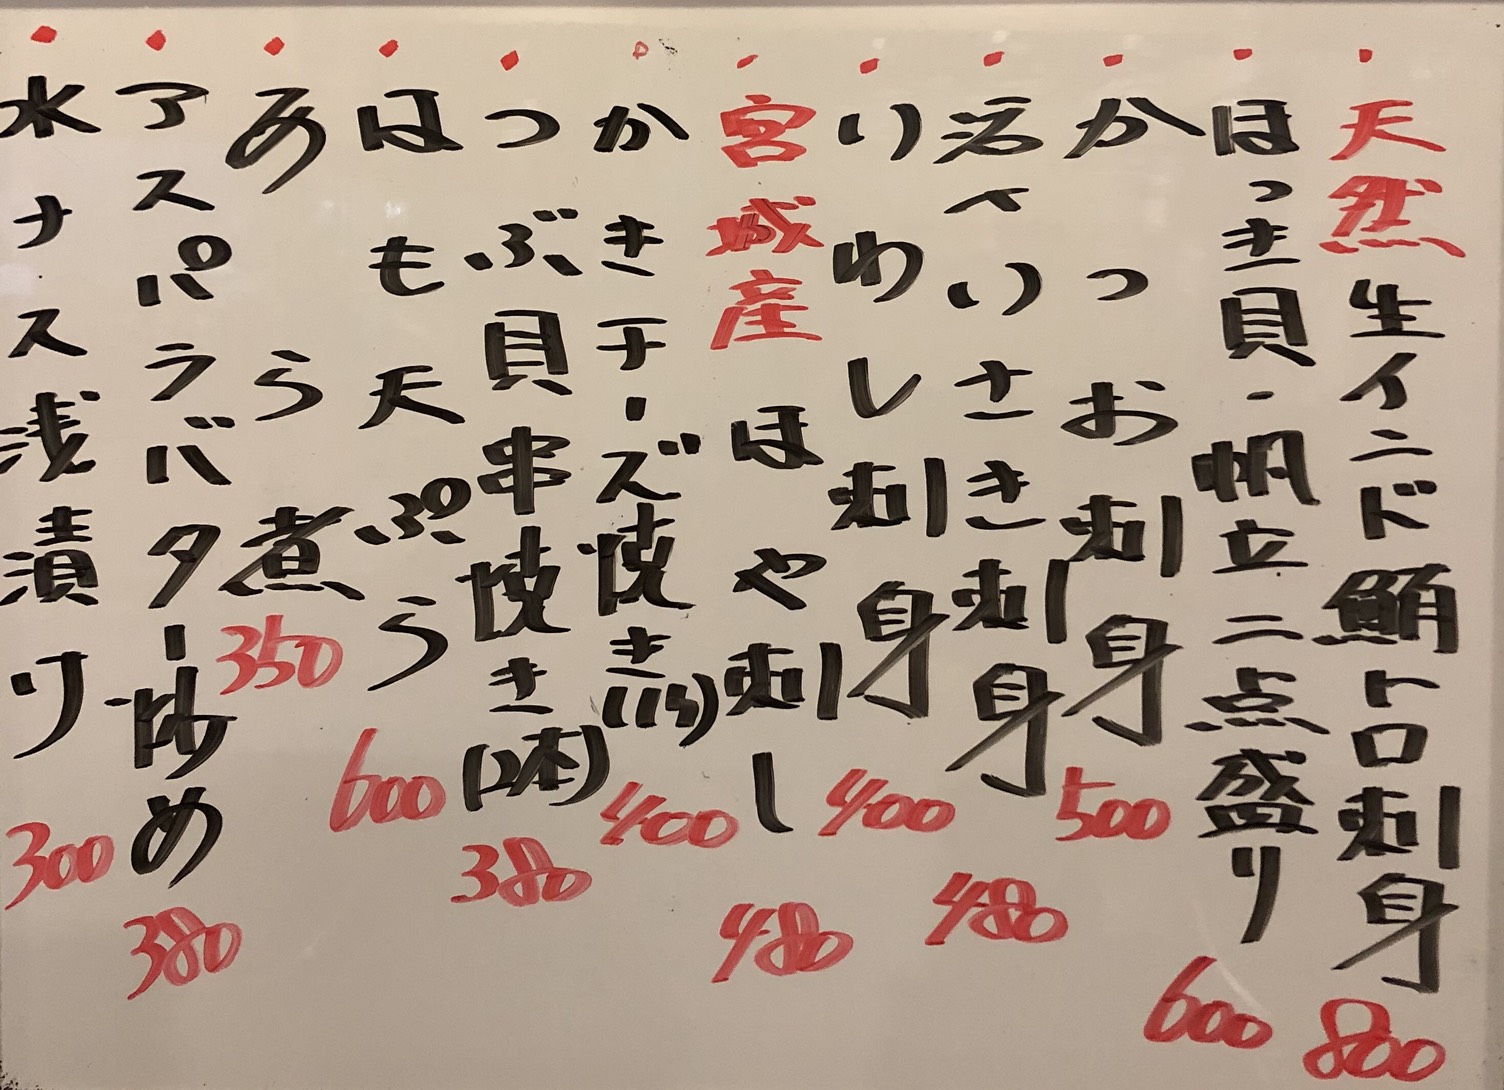 天然生インド鮪トロ刺身 800
ほっき貝・帆立二点盛り 600
かつお刺身 500
活〆いさき刺身 480
いわし刺身 400
宮城産 ほや刺し 480
かきチーズ焼き(1ヶ) 400
つぶ貝串焼き(2本) 380
はも天ぷら 600
あら煮 350
アスパラバター炒め 380
水ナス浅漬け 300